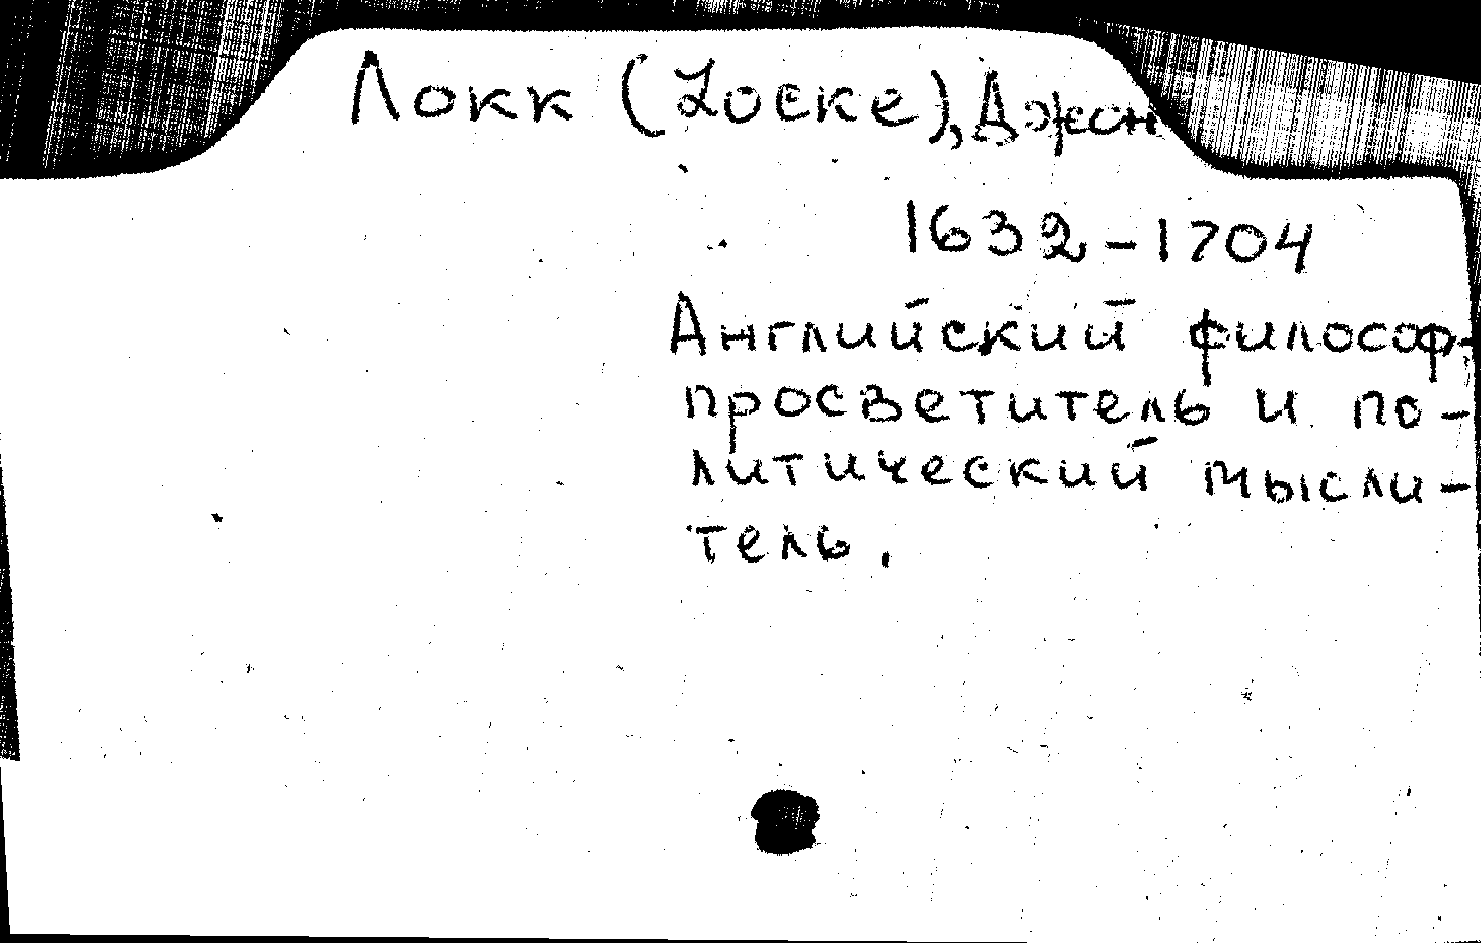 Локк (Locke), Джон
1632-1704
Английский философ-
просветитель и по-
литический мысли-
тель.